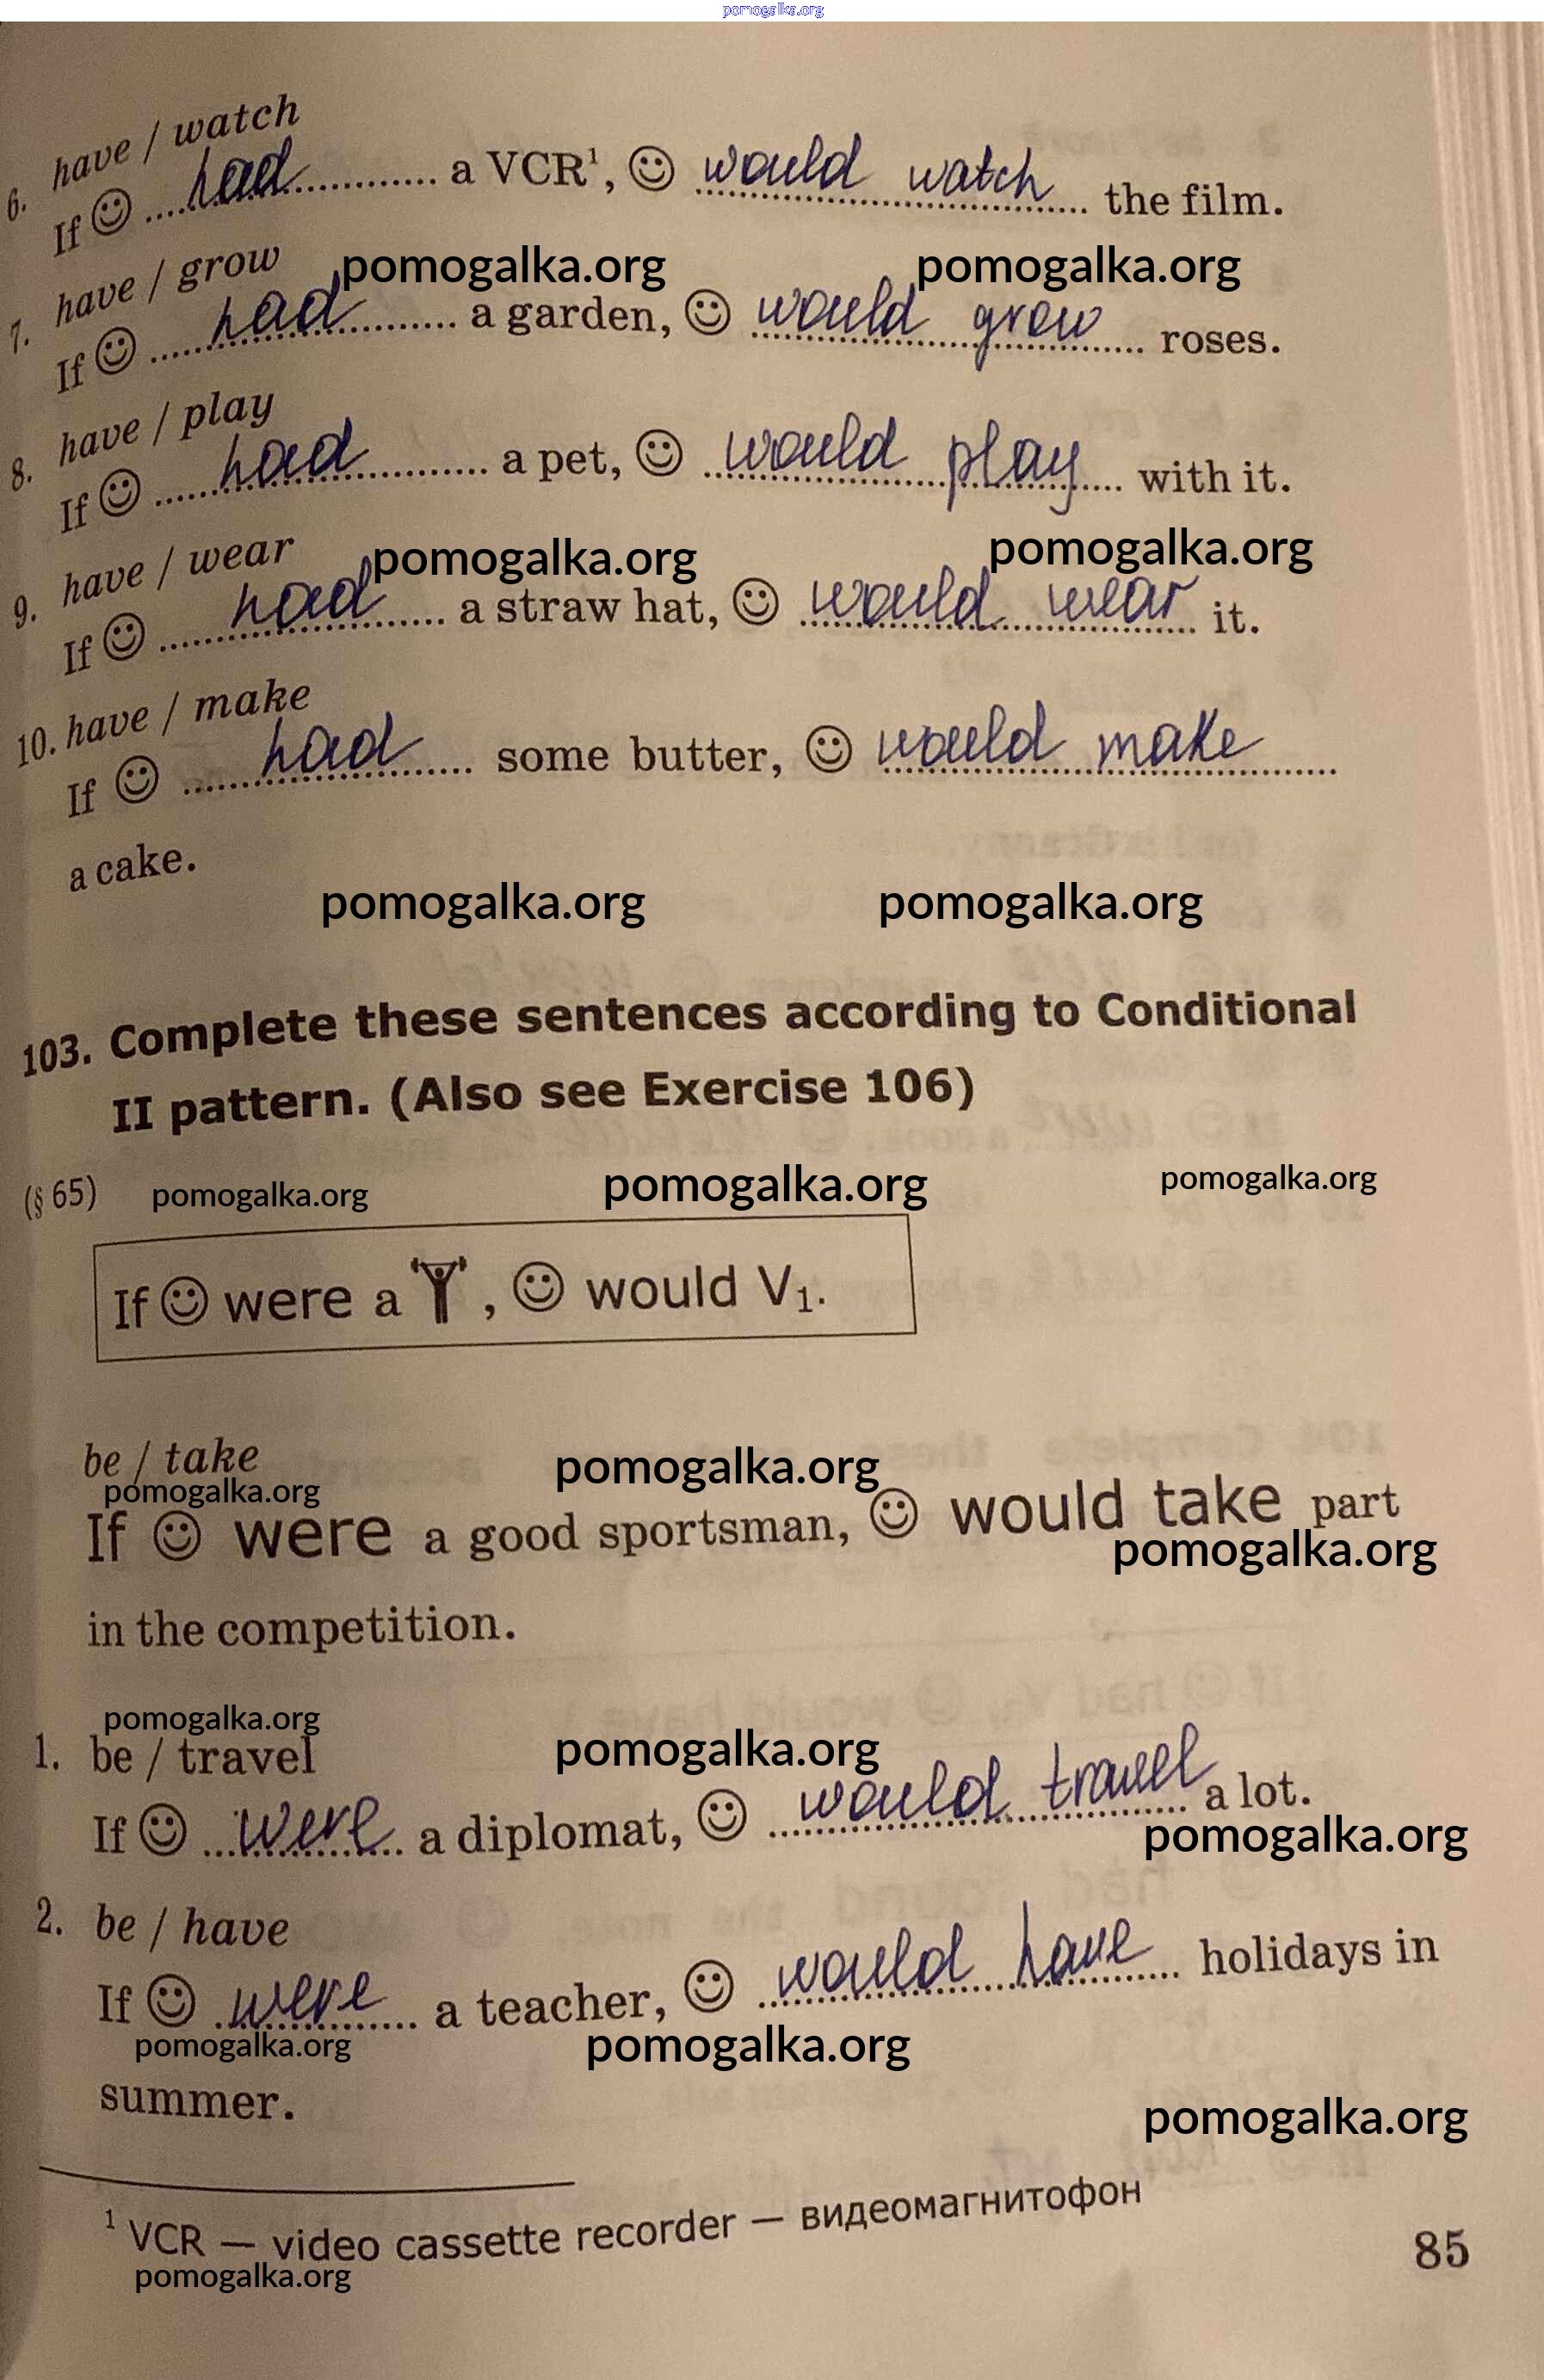 pomogalka.org
6. have / watch
If ☺ had a VCR¹, ☺ would watch the film.
pomogalka.org pomogalka.org
7. have / grow
If ☺ had a garden, ☺ would grow roses.
8. have / play
If ☺ had a pet, ☺ would play with it.
pomogalka.org pomogalka.org
9. have / wear
If ☺ had a straw hat, ☺ would wear it.
10. have / make
If ☺ had some butter, ☺ would make
a cake.
pomogalka.org pomogalka.org
103. Complete these sentences according to Conditional
II pattern. (Also see Exercise 106)
(§ 65) pomogalka.org pomogalka.org pomogalka.org
If ☺ were a , ☺ would V₁.
be / take
pomogalka.org pomogalka.org
If ☺ were a good sportsman, ☺ would take part
pomogalka.org
in the competition.
pomogalka.org pomogalka.org
1. be / travel
If ☺ were a diplomat, ☺ would travel a lot.
pomogalka.org
2. be / have
If ☺ were a teacher, ☺ would have holidays in
pomogalka.org pomogalka.org
summer.
pomogalka.org
¹ VCR — video cassette recorder — видеомагнитофон
pomogalka.org
85